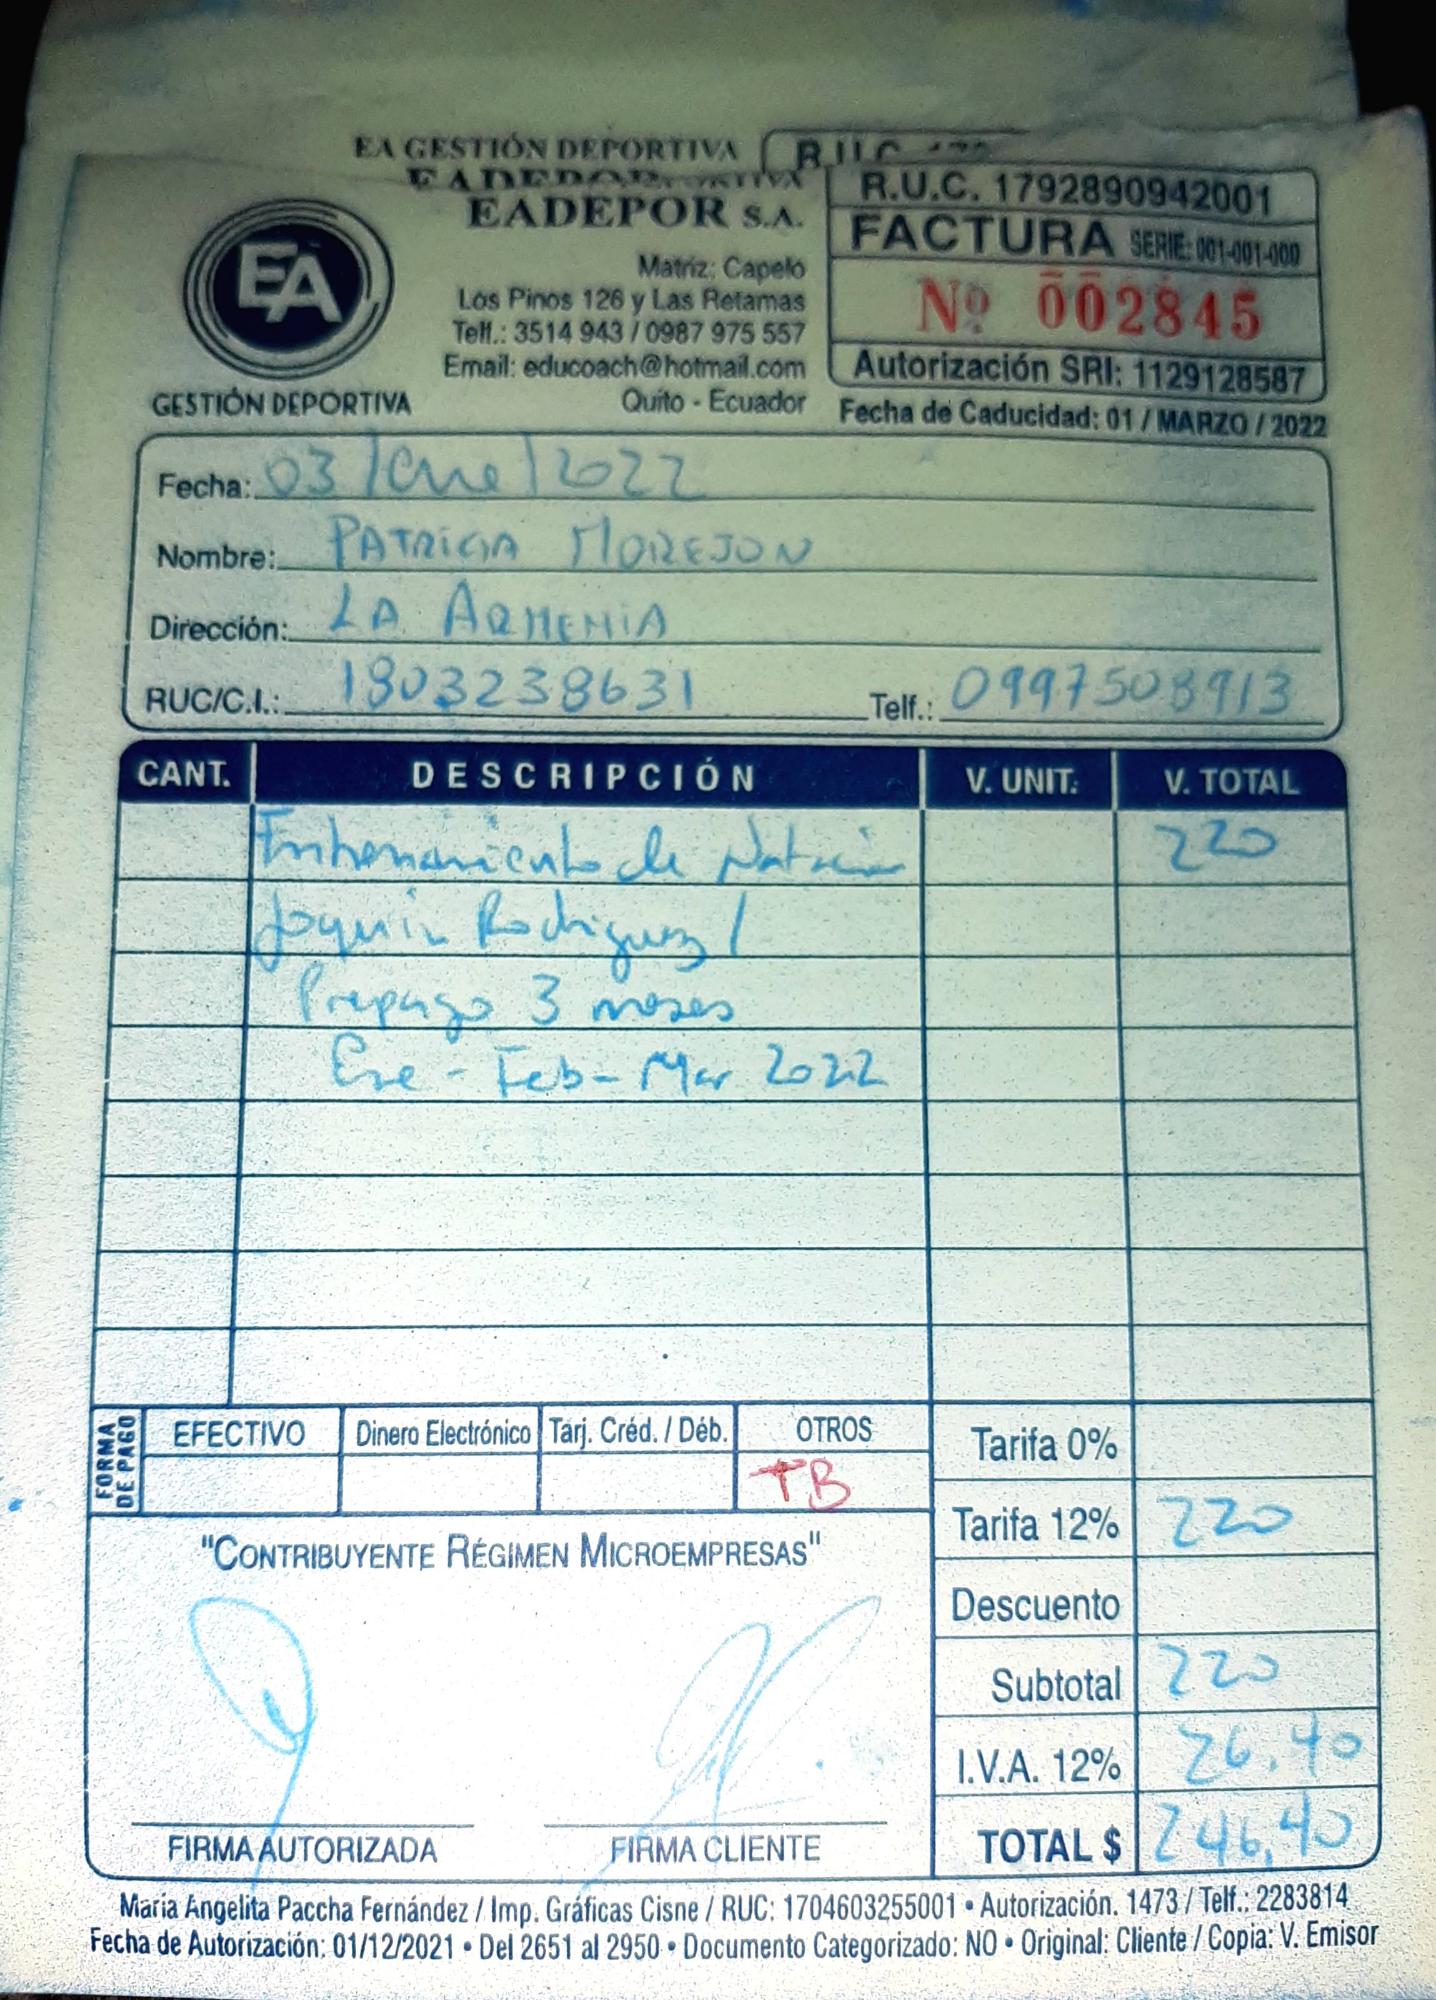 EA GESTIÓN DEPORTIVA
EADEPOR S.A.
EA
GESTIÓN DEPORTIVA
Matriz: Capelo
Los Pinos 126 y Las Retamas
Telf.: 3514 943 / 0987 975 557
Email: educoach@hotmail.com
Quito - Ecuador
R.U.C. 1792890942001
FACTURA SERIE: 001-001-000
Nº 002845
Autorización SRI: 1129128587
Fecha de Caducidad: 01 / MARZO / 2022
Fecha: 03/Ene/2022
Nombre: PATRICIA MOREJON
Dirección: LA ARMENIA
RUC/C.I.: 1803238631 Telf.: 0997508913
CANT. DESCRIPCIÓN V. UNIT. V. TOTAL
Entrenamiento de Natación 220
Joaquin Rodriguez /
Prepago 3 meses
Ene - Feb - Mar 2022
FORMA DE PAGO
EFECTIVO Dinero Electrónico Tarj. Créd. / Déb. OTROS
TB
Tarifa 0%
Tarifa 12% 220
Descuento
Subtotal 220
I.V.A. 12% 26.40
TOTAL $ 246,40
"CONTRIBUYENTE RÉGIMEN MICROEMPRESAS"
FIRMA AUTORIZADA FIRMA CLIENTE
María Angelita Paccha Fernández / Imp. Gráficas Cisne / RUC: 1704603255001 • Autorización. 1473 / Telf.: 2283814
Fecha de Autorización: 01/12/2021 • Del 2651 al 2950 • Documento Categorizado: NO • Original: Cliente / Copia: V. Emisor